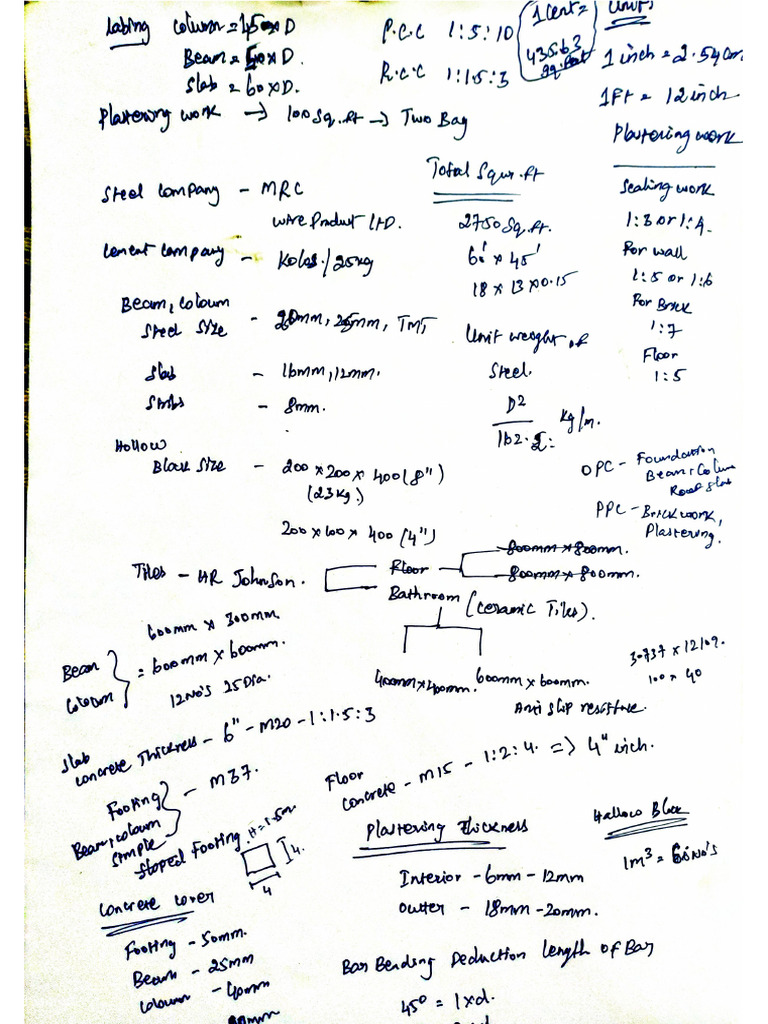 Labing Column = 450xD
Beam = 40xD.
Slab = 60xD.
P.C.C 1:5:10
R.C.C 1:1.5:3
1 Cent =
435.63
sq.feet
Units
1 inch = 2.54 cm
1Ft = 12 inch
Plastering work → 100 Sq.ft → Two Bag
Plastering work
Sealing work
1:3 or 1:4.
For wall
1:5 or 1:6
For Brick
1:7
Floor
1:5
Total Squr.ft
2750 Sq.ft.
60' x 45'
18 x 13 x 0.15
Unit weight of
Steel.
D2
162.2 kg/m.
Steel Company - MRC
wire Product LTD.
Cement Company - Kolas./25kg
Beam, Coloum
Steel Size - 20mm, 25mm, TMT
Slab - 16mm, 12mm.
- 8mm.
Hollow
Block Size - 200 x 200 x 400 (8")
(23kg.)
200 x 100 x 400 (4")
OPC - Foundation
Beam, Colum
Roof Slab
PPC - Brick work,
Plastering.
Tiles - HR Johnson.
Floor
800mm x 800mm.
800mm x 800mm.
Bathroom (Ceramic Tiles).
400mm x 400mm. 600mm x 600mm.
Anti slip resistance.
30.737 x 12109.
100 x 40
600mm x 300mm
Beam
Coloum = 600mm x 600mm.
12No's 25Dia.
Slab
Concrete Thickness - 6" - M20 - 1:1.5:3
Footing
Beam, coloum - M37.
Simple
Sloped Footing. H=1.5m
4.
4
Floor
Concrete - M15 - 1:2:4. => 4" inch.
Plastering Thickness
Interior - 6mm - 12mm
Outter - 18mm - 20mm.
Hallow Block
1m3 = 60No's
Concrete Cover
Footing - 50mm.
Beam - 25mm
Coloum - 40mm
Bar Bending Deduction length of Bar
45° = 1xd.